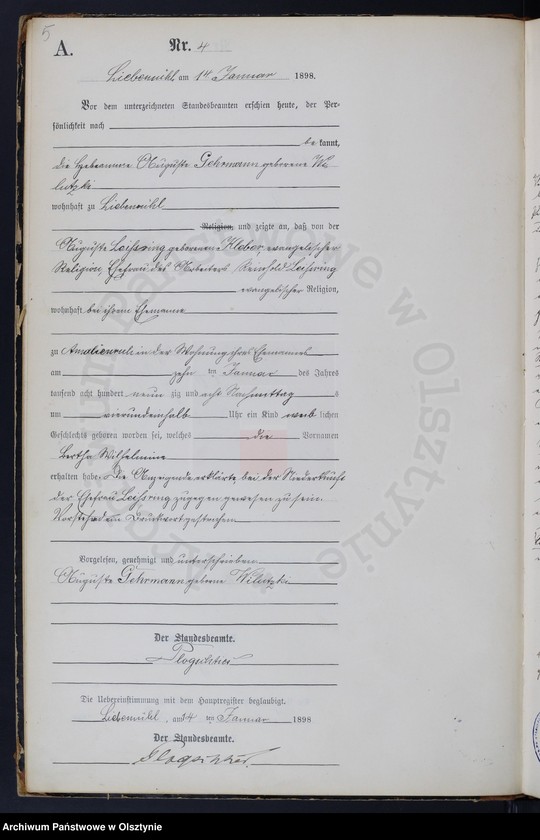 5
A.
Nr. 4
Liebemühl am 14 Januar 1898.
Vor dem unterzeichneten Standesbeamten erschien heute, der Per-
sönlichkeit nach
be kannt,
die Hebeamme Auguste Gehrmann geborene Wi-
lutzki
wohnhaft zu Liebemühl
Religion, und zeigte an, daß von der
Auguste Leissring geborenen Klebar, evangelischer
Religion, Ehefrau des Arbeiters Reinhold Leissring
evangelischer Religion,
wohnhaft bei ihrem Ehemanne
zu Amalienruh in der Wohnung ihres Ehemannes
am zehn ten Januar des Jahres
tausend acht hundert neun zig und acht Nachmittag s
um vierundeinhalb Uhr ein Kind weib lichen
Geschlechts geboren worden sei, welches die Vornamen
Bertha Wilhelmine
erhalten habe. Die Anzeigende erklärte, bei der Niederkunft
der Ehefrau Leissring zugegen gewesen zu sein.
Vorstehend ein Druckwort gestrichen
Vorgelesen, genehmigt und unterschrieben
Auguste Gehrmann geborne Wilutzki
Der Standesbeamte.
Die Uebereinstimmung mit dem Hauptregister beglaubigt.
Liebemühl, am 14 ten Januar 1898
Der Standesbeamte.
Archiwum Państwowe w Olsztynie
Archiwum Państwowe w Olsztynie